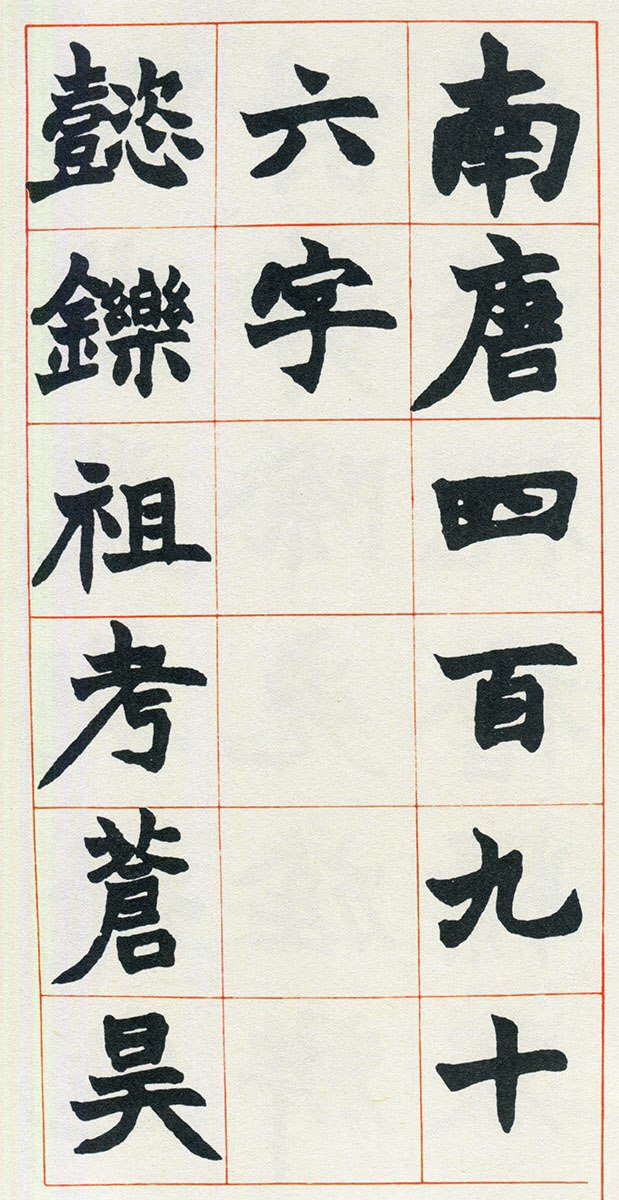 南唐四百九十
六字
懿鑠祖考蒼昊